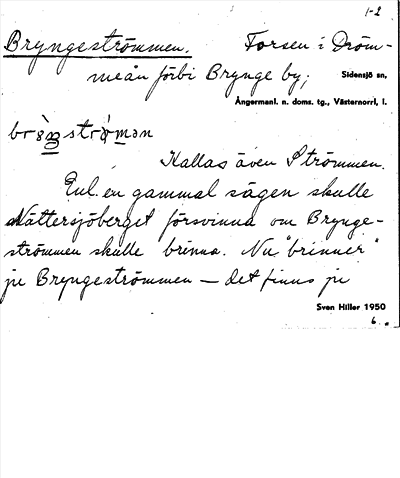 1-2
Bryngeströmmen. Forsen i Dröm-
meån förbi Brynge by;
Sidensjö sn,
Ångermanl. n. doms. tg., Västernorrl, l.
Kallas även Strömmen.
Enl. en gammal sägen skulle
Nättersjöberget försvinna om Brynge-
strömmen skulle brinna. Nu "brinner"
ju Bryngeströmmen — det finns ju
Sven Hiller 1950
6.